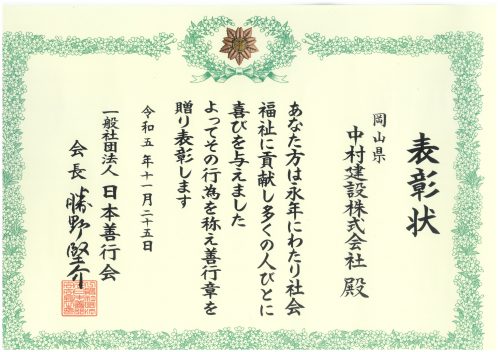 表彰状
岡山県
中村建設株式会社 殿
あなた方は永年にわたり社会
福祉に貢献し多くの人びとに
喜びを与えました
よってその行為を称え善行章を
贈り表彰します
令和五年十一月二十五日
一般社団法人 日本善行会
会長 勝野堅介